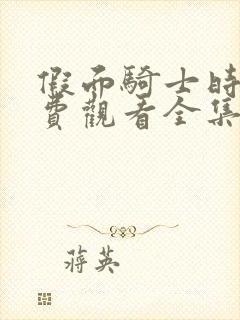 假面騎士時
費觀看全集
蔣英